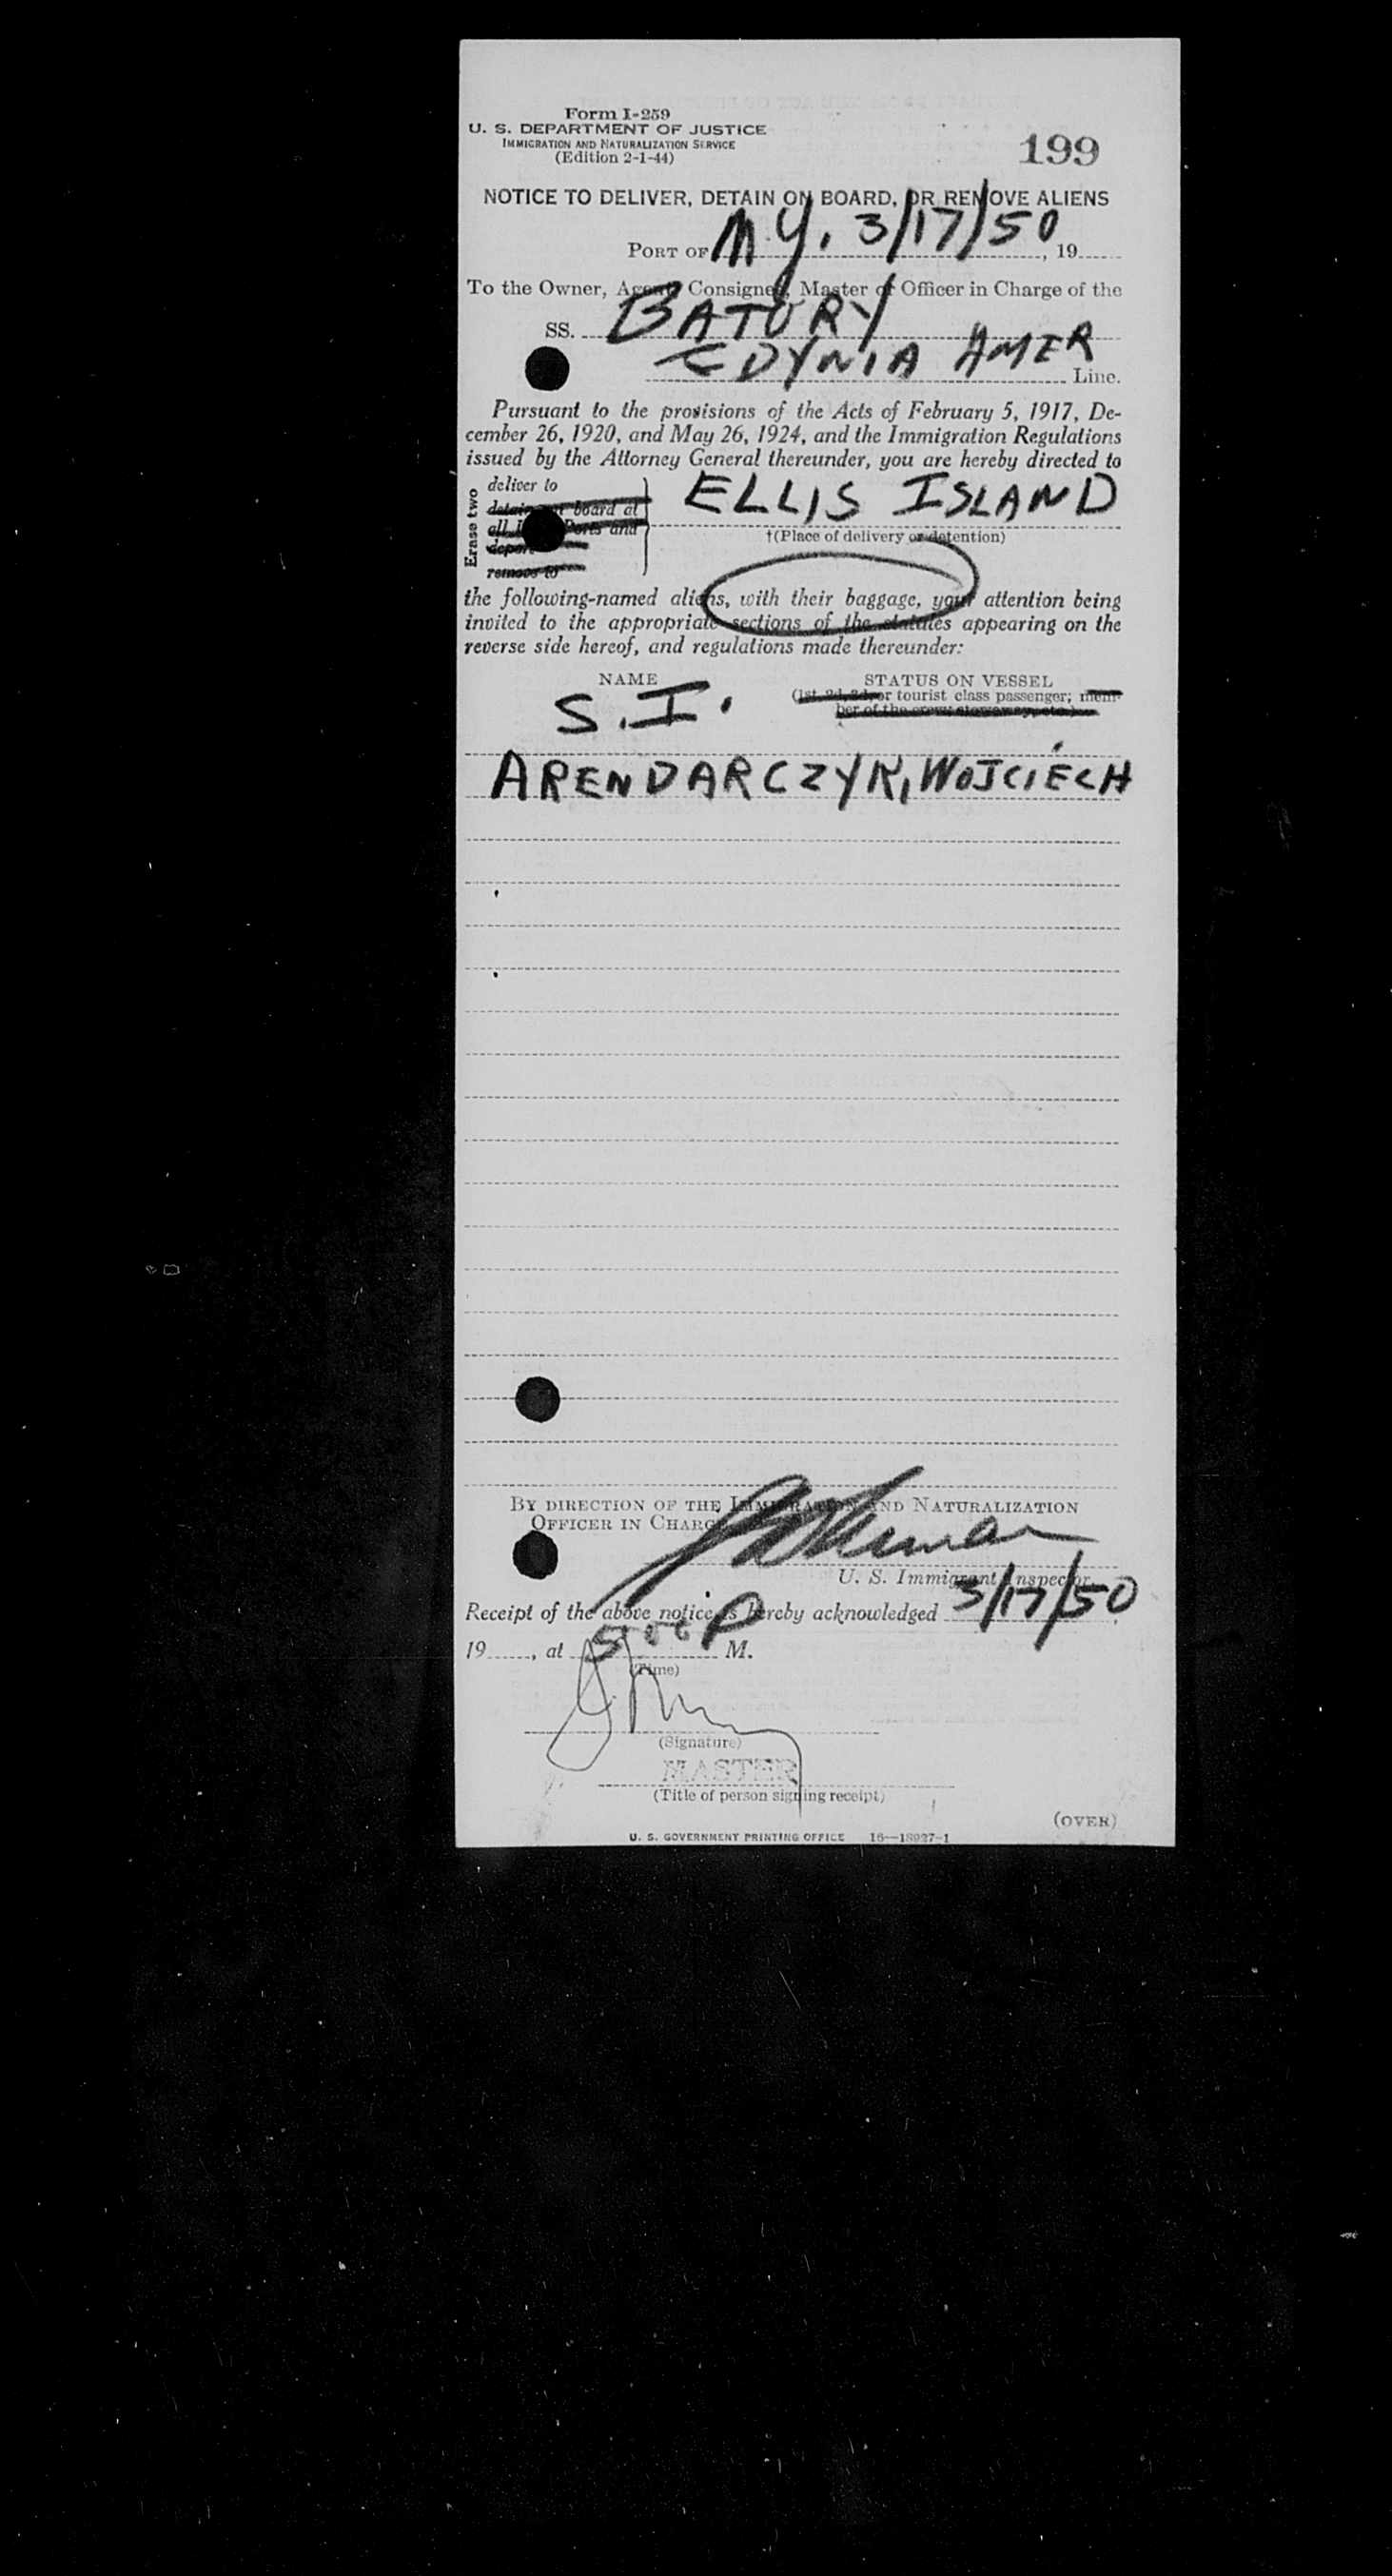 Form I-259
U. S. DEPARTMENT OF JUSTICE
IMMIGRATION AND NATURALIZATION SERVICE
(Edition 2-1-44)
199
NOTICE TO DELIVER, DETAIN ON BOARD, OR REMOVE ALIENS
PORT OF N.Y. 3/17/50, 19
To the Owner, Agent, Consignee, Master or Officer in Charge of the
SS. BATORY
GDYNIA AMER Line.
Pursuant to the provisions of the Acts of February 5, 1917, De-
cember 26, 1920, and May 26, 1924, and the Immigration Regulations
issued by the Attorney General thereunder, you are hereby directed to
Erase two
deliver to
detain on board at
all Ports and
deport
remove to
ELLIS ISLAND
†(Place of delivery or detention)
the following-named aliens, with their baggage, your attention being
invited to the appropriate sections of the statutes appearing on the
reverse side hereof, and regulations made thereunder:
NAME
STATUS ON VESSEL
(1st, 2d, 3d, or tourist class passenger; mem-
ber of the crew; stowaway, etc.)
S.I.
ARENDARCZYK, WOJCIECH
BY DIRECTION OF THE IMMIGRATION AND NATURALIZATION
OFFICER IN CHARGE
U. S. Immigrant Inspector.
Receipt of the above notice is hereby acknowledged 3/17/50,
19, at 5:00 P M.
(Time)
(Signature)
MASTER
(Title of person signing receipt)
(OVER)
U. S. GOVERNMENT PRINTING OFFICE 16—18927-1